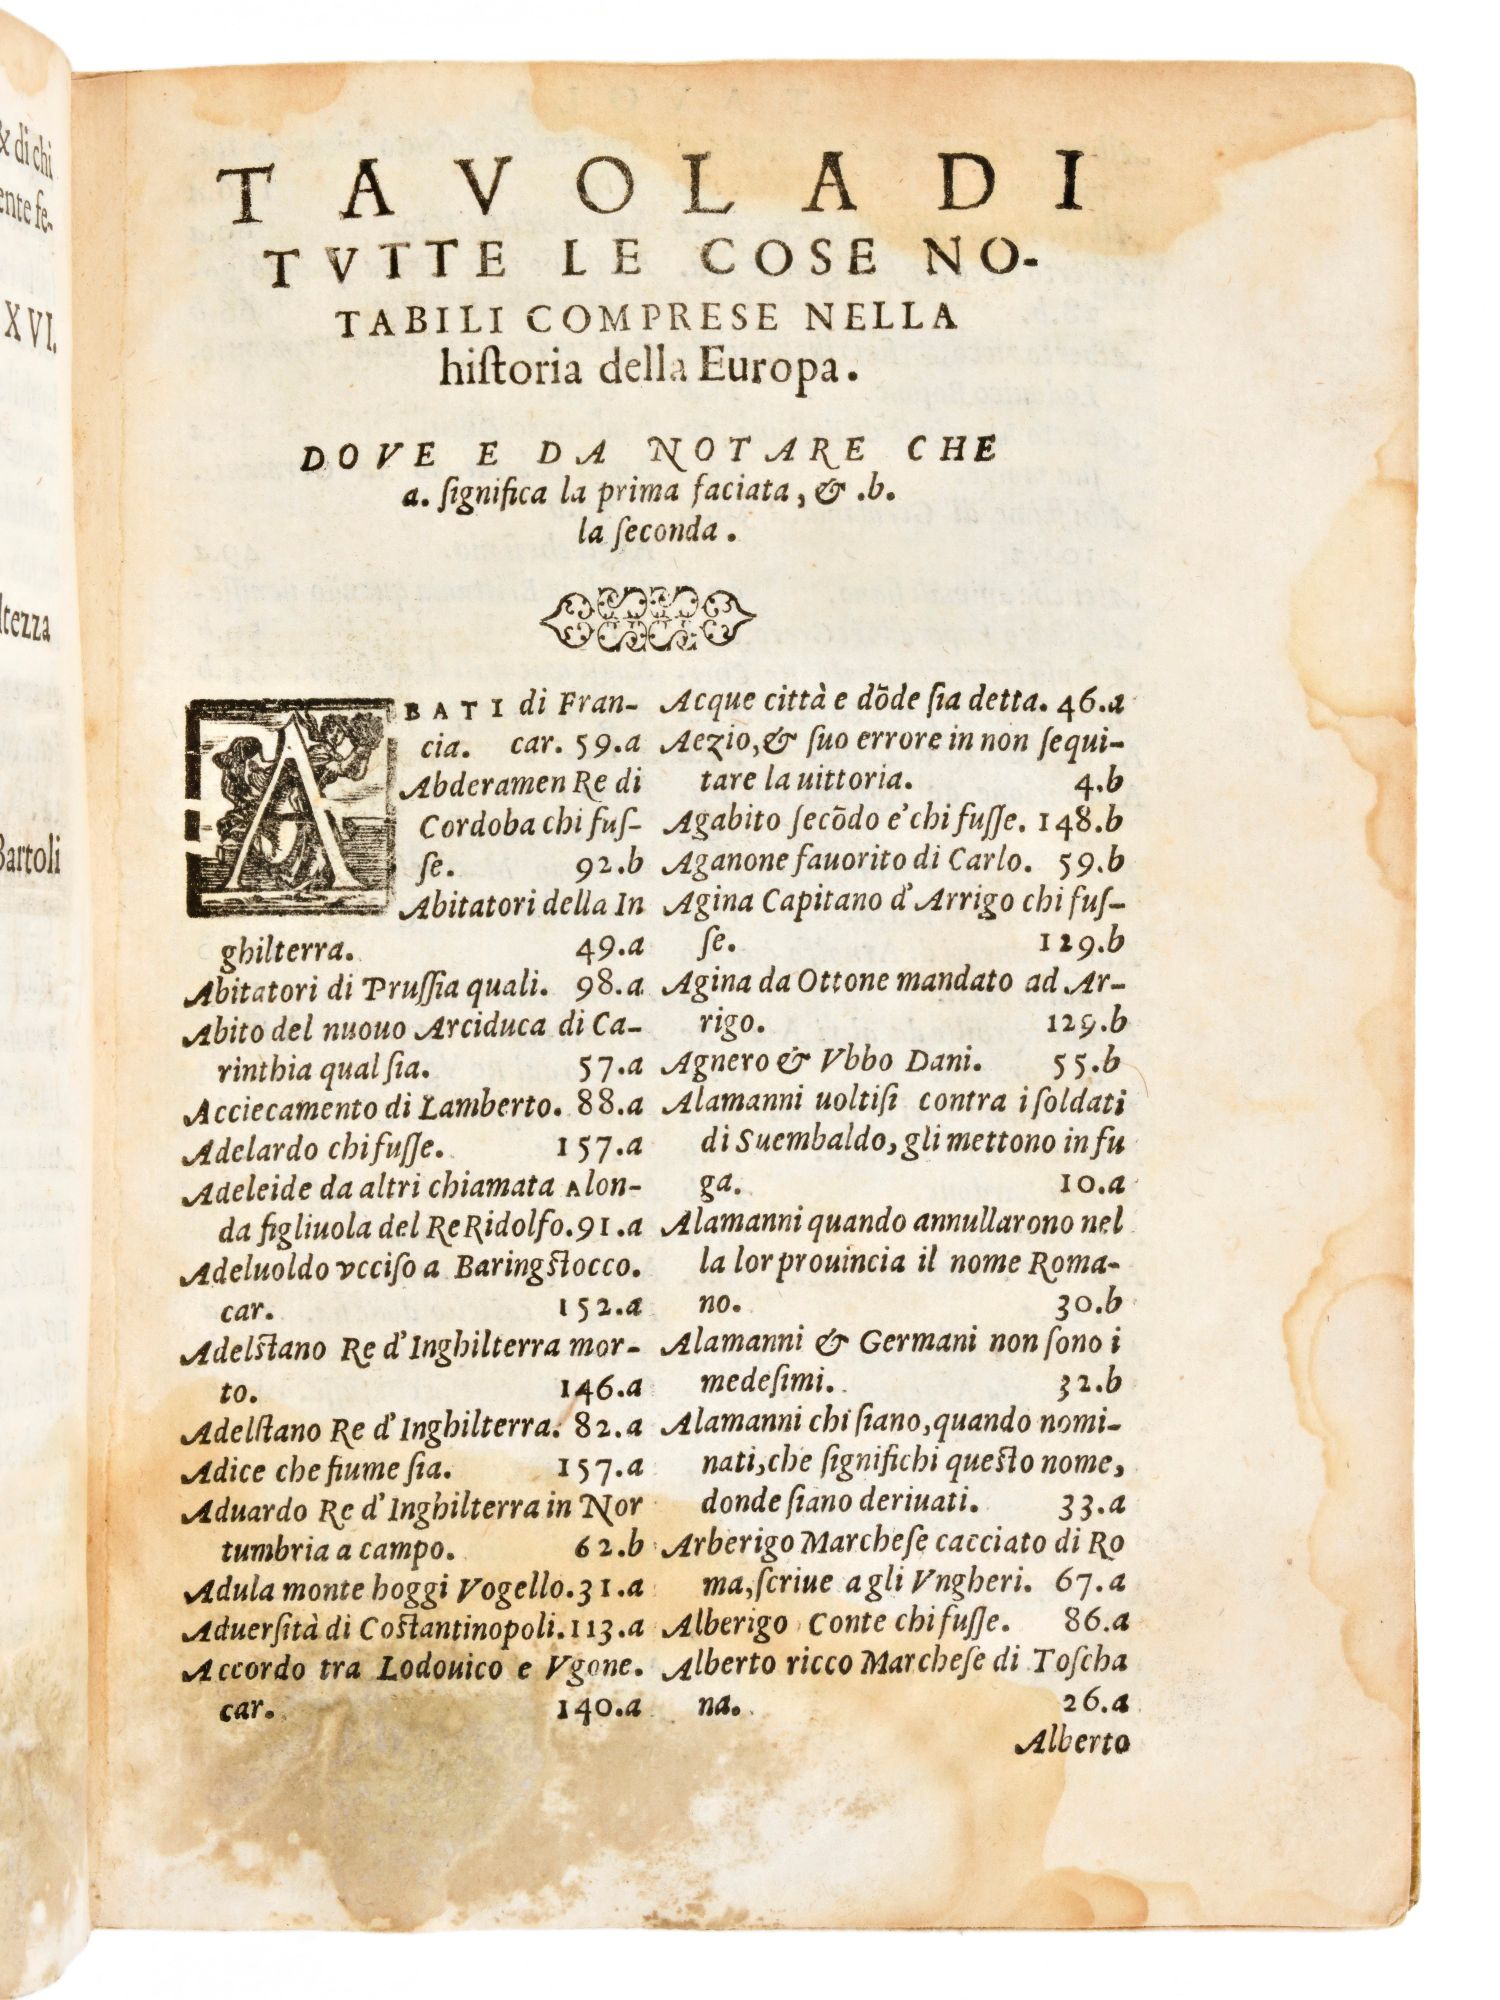 & di chi
ente fe-
XVI.
ltezza
Bartoli
TAVOLA DI
TVTTE LE COSE NO-
TABILI COMPRESE NELLA
hiſtoria della Europa.
DOVE E DA NOTARE CHE
a. ſignifica la prima faciata, & .b.
la ſeconda.
ABATI di Fran-
cia. car. 59.a
Abderamen Re di
Cordoba chi fuſ-
ſe. 92.b
Abitatori della In
ghilterra. 49.a
Abitatori di Pruſſia quali. 98.a
Abito del nuouo Arciduca di Ca-
rinthia qual ſia. 57.a
Acciecamento di Lamberto. 88.a
Adelardo chi fuſſe. 157.a
Adeleide da altri chiamata Alon-
da figliuola del Re Ridolfo. 91.a
Adeluoldo vcciſo a Baringſtocco.
car. 152.a
Adelſtano Re d'Inghilterra mor-
to. 146.a
Adelſtano Re d'Inghilterra. 82.a
Adice che fiume ſia. 157.a
Aduardo Re d'Inghilterra in Nor
tumbria a campo. 62.b
Adula monte hoggi Vogello. 31.a
Aduerſità di Coſtantinopoli. 113.a
Accordo tra Lodouico e Vgone.
car. 140.a
Acque città e dōde ſia detta. 46.a
Aezio, & ſuo errore in non ſequi-
tare la uittoria. 4.b
Agabito ſecōdo e' chi fuſſe. 148.b
Aganone fauorito di Carlo. 59.b
Agina Capitano d'Arrigo chi fuſ-
ſe. 129.b
Agina da Ottone mandato ad Ar-
rigo. 129.b
Agnero & Vbbo Dani. 55.b
Alamanni uoltiſi contra i ſoldati
di Suembaldo, gli mettono in fu
ga. 10.a
Alamanni quando annullarono nel
la lor prouincia il nome Roma-
no. 30.b
Alamanni & Germani non ſono i
medeſimi. 32.b
Alamanni chi ſiano, quando nomi-
nati, che ſignifichi queſto nome,
donde ſiano deriuati. 33.a
Arberigo Marcheſe cacciato di Ro
ma, ſcriue agli Vngheri. 67.a
Alberigo Conte chi fuſſe. 86.a
Alberto ricco Marcheſe di Toſcha
na. 26.a
Alberto